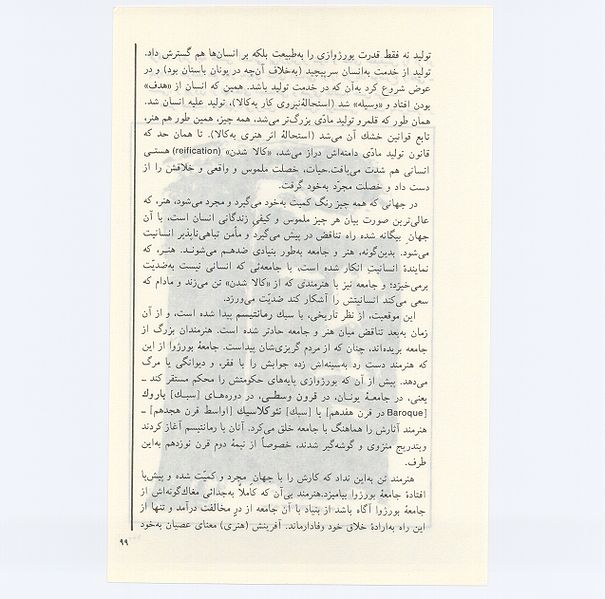 تولید نه فقط قدرت بورژوازی را به‌طبیعت بلکه بر انسان‌ها هم گسترش داد.
تولید از خدمت به‌انسان سرپیچید (به‌خلاف آن‌چه در یونان باستان بود) و در
عوض شروع کرد به‌آن که در خدمت تولید باشد. همین که انسان از «هدف»
بودن افتاد و «وسیله» شد (استحالهٔ نیروی کار به‌کالا)، تولید علیه انسان شد.
همان طور که قلمرو تولید مادّی بزرگ‌تر می‌شد، همه چیز، همین طور هم هنر،
تابع قوانین خشك آن می‌شد (استحالهٔ اثر هنری به‌کالا). تا همان حد که
قانون تولید مادّی دامنه‌اش دراز می‌شد، «کالا شدن» (reification) هستی
انسانی هم شدت می‌یافت.حیات، خصلت ملموس و واقعی و خلاقش را از
دست داد و خصلت مجرّد به‌خود گرفت.
در جهانی که همه چیز رنگ کمیت به‌خود می‌گیرد و مجرد می‌شود، هنر، که
عالی‌ترین صورت بیان هر چیز ملموس و کیفیِ زندگانی انسان است، با آن
جهان بیگانه شده راه تناقض در پیش می‌گیرد و مأمن تباهی‌ناپذیر انسانیت
می‌شود. بدین‌گونه، هنر و جامعه به‌طور بنیادی ضدهم می‌شوند. هنر، که
نمایندهٔ انسانیتِ انکار شده است، با جامعه‌ئی که انسانی نیست به‌ضدیّت
برمی‌خیزد؛ و جامعه نیز با هنرمندی که از «کالا شدن» تن می‌زند و مادام که
سعی می‌کند انسانیتش را آشکار کند ضدیّت می‌ورزد.
این موقعیت، از نظر تاریخی، با سبك رمانتیسم پیدا شده است، و از آن
زمان به‌بعد تناقض میان هنر و جامعه حادتر شده است. هنرمندان بزرگ از
جامعه بریده‌اند، چنان که از مردم گریزی‌شان پیداست. جامعهٔ بورژوا از این
که هنرمند دست رد به‌سینه‌اش زده جوابش را با فقر، و دیوانگی یا مرگ
می‌دهد. پیش از آن که بورژوازی پایه‌های حکومتش را محکم مستقر کند ـ
یعنی، در جامعهٔ یونان، در قرون وسطی، در دوره‌های [سبك] باروك
[Baroque در قرن هفدهم] یا [سبك] نئوکلاسیك [اواسط قرن هجدهم] ـ
هنرمند آثارش را هماهنگ با جامعه خلق می‌کرد. آنان با رمانتیسم آغاز کردند
وبتدریج منزوی و گوشه‌گیر شدند، خصوصاً از نیمهٔ دوم قرن نوزدهم به‌این
طرف.
هنرمند تن به‌این نداد که کارش را با جهان مجرد و کمیّت شده و پیش‌پا
افتادهٔ جامعهٔ بورژوا بیامیزد.هنرمند بی‌آن که کاملاً به‌جدائی مغاك‌گونه‌اش از
جامعهٔ بورژوا آگاه باشد از بنیاد با آن جامعه از درِ مخالفت درآمد و تنها از
این راه به‌ارادهٔ خلاق خود وفادارماند. آفرینش (هنری) معنای عصیان به‌خود
۹۹